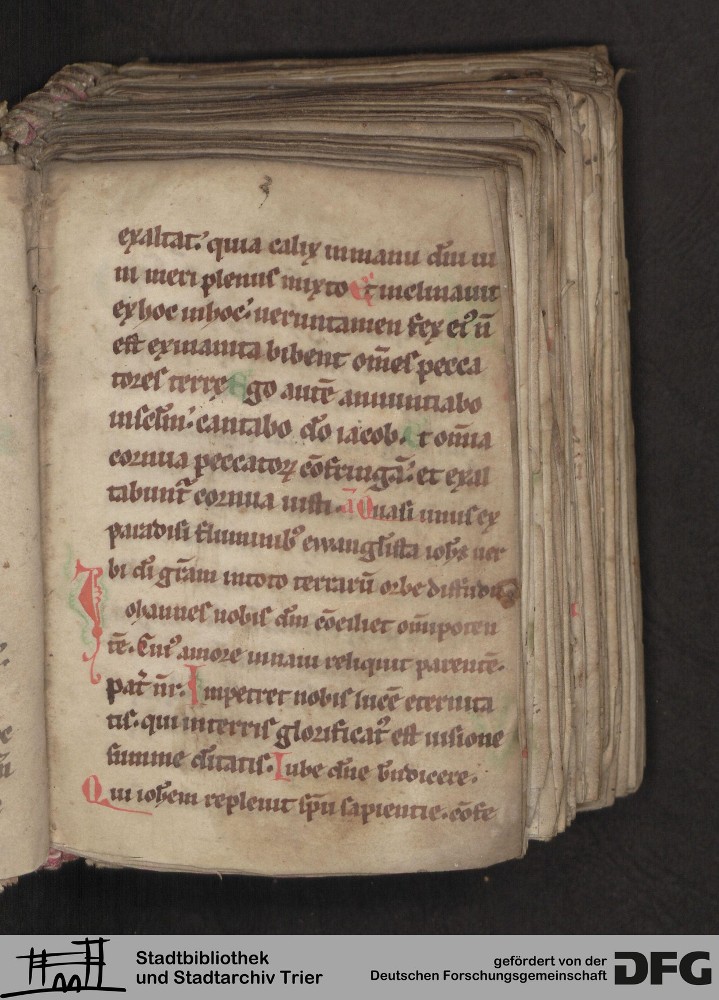 exaltat. quia calix in manu dñi ui
ni meri plenus mixto Et inclinauit
ex hoc in hoc. ueruntamen fex eiꝰ ñ
est exinanita bibent om̄es pecca
tores terrę Ego autē annuntiabo
in sclm̄. cantabo dō iacob. Et om̄ia
cornua peccatoꝝ cōfringā. et exal
tabunt᷑ cornua iusti. ā Quasi unus ex
paradisi fluminibꝰ ewanglista iohs uer
bi di gr̄am in toto terrarū orbe diffudit
Iohannes nobis dm̄ cōciliet om̄ipoten
tē. Cuiꝰ amore uinam reliquit parentē.
pat̄ nr̄. Impetret nobis lucē eternita
tis. qui in terris glorificat᷑ est uisione
summe ditatis. Iube dn̄e b̄ndicere.
Qui iohem repleuit sp̄u sapientie. cōfe
Stadtbibliothek
und Stadtarchiv Trier
gefördert von der
Deutschen Forschungsgemeinschaft
DFG